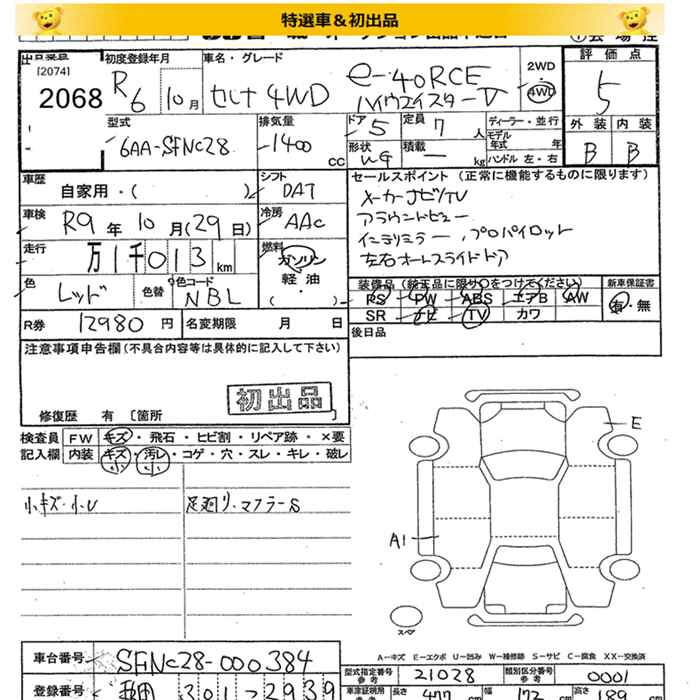 特選車＆初出品
出品番号
[2074]
2068
初度登録年月
R6 10月
車名・グレード
セレナ 4WD
e-4ORCE
ハイウェイスターV
2WD
4WD
評価点
5
型式
6AA-SFNC28
排気量
1400
cc
ドア 5
定員 7 人
形状
積載 - kg
ディーラー・並行
モデル年式 年
ハンドル 左・右
外装 内装
B B
車歴
自家用・( )
シフト
DAT
車検
R9年10月(29日)
冷房
AAC
走行
万1千013km
燃料
ガソリン
軽油
色
レッド
色替
色コード
NBL
セールスポイント（正常に機能するものに限ります）
メーカーナビ/TV
アラウンドビュー
インテリミラー、プロパイロット
左右オートスライドドア
装備品（純正品に限り○をつけてください）
PS PW ABS エアB AW
SR ナビ TV カワ
新車保証書
有・無
R券 12980円
名変期限 月 日
後日品
注意事項申告欄（不具合内容等は具体的に記入して下さい）
初出品
修復歴 有〔箇所 〕
検査員 FW キズ・飛石・ヒビ割・リペア跡・×要
記入欄 内装 キズ・汚レ・コゲ・穴・スレ・キレ・破レ
小 小
小キズ・小U
足廻り・マフラーS
E
A1
スペア
A－キズ E－エクボ U－凹み W－補修跡 S－サビ C－腐食 XX－交換済
車台番号 SFNC28-000384
型式指定番号 21028
類別区分番号 0001
登録番号 301-2939
車庫証明用参考 長さ 477 cm 172 cm 高さ 189